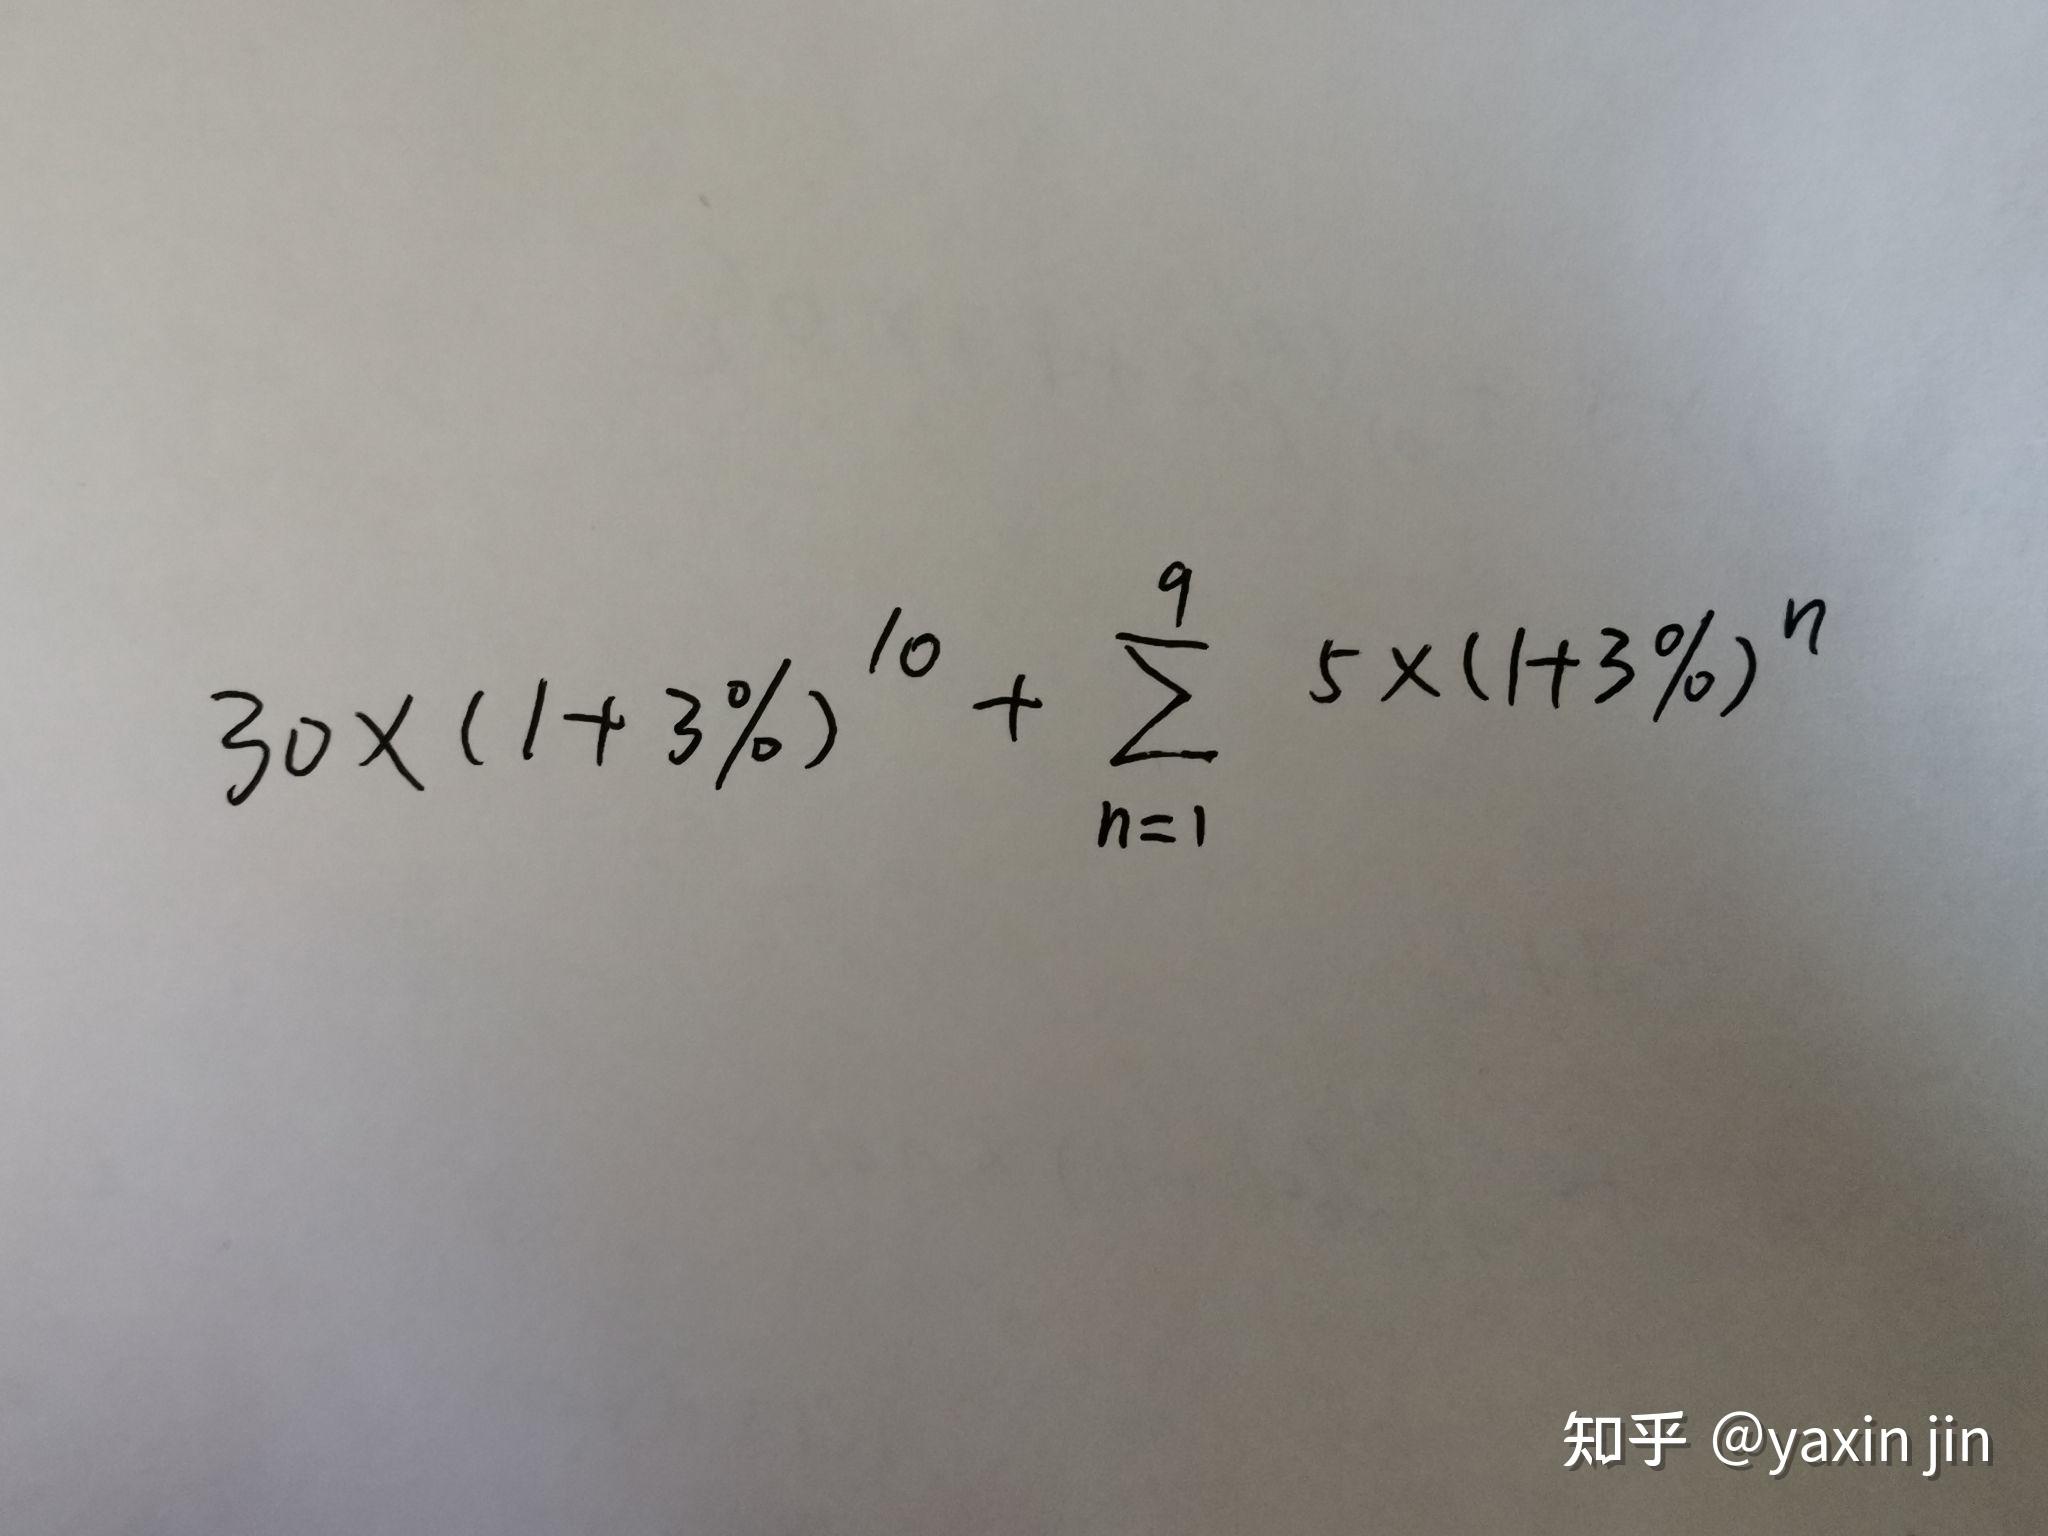 30×(1+3%)^10 + ∑_{n=1}^{9} 5×(1+3%)^n
知乎 @yaxin jin